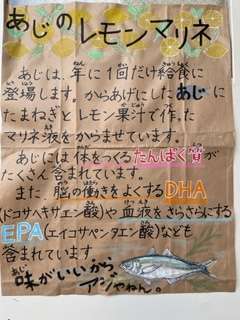 あじのレモンマリネ
あじは、年に1回だけ給食に
登場します。からあげにしたあじに
たまねぎとレモン果汁で作った
マリネ液をからませています。
あじには体をつくるたんぱく質が
たくさん含まれています。
また 脳の働きをよくするDHA
(ドコサヘキサエン酸)や血液をさらさらにする
EPA(エイコサペンタエン酸)なども
含まれています。
味がいいから
アジやねん。